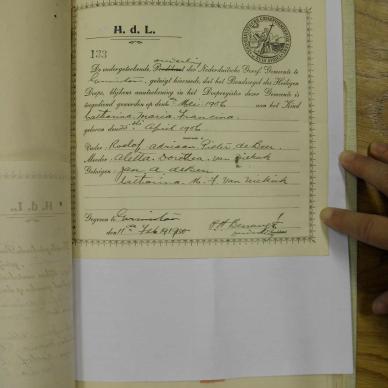 H. d. L.
133
ouderling
De ondergeteekende, Predikant der Nederduitsche Geref. Gemeente te
Germiston, getuigt hiermede, dat het Bondzegel des Heiligen
Doops, blijkens aanteekening in het Doopregister dezer Gemeente is
toegediend geworden op den Mei 1906 aan het Kind
Catharina Maria Francina
geboren den April 1906
Vader, Roelof Adriaan Pieter de Beer
Moeder, Aletta Dorothea van Niekerk
Getuigen, Jan A
Catarina M. F. van Niekerk
Gegeven te Germiston
den 11de Feb 1920